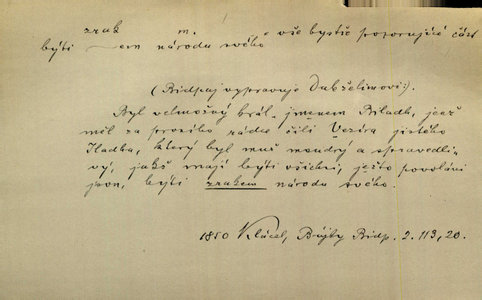 zrak m.
býti ~em národu svého „vše bystře pozorující část
(Bidpaj vypravuje Dabšelimovi:)
Byl velmožný král, jmenem Biladh, jenž
měl za prvního rádce čili Vezíra jistého
Iladha, který byl muž moudrý a spravedli-
vý, jakž mají býti všickni, ježto povoláni
jsou, býti zrakem národu svého
1850 Klácel, Bájky Bidp. 2. 113, 20.